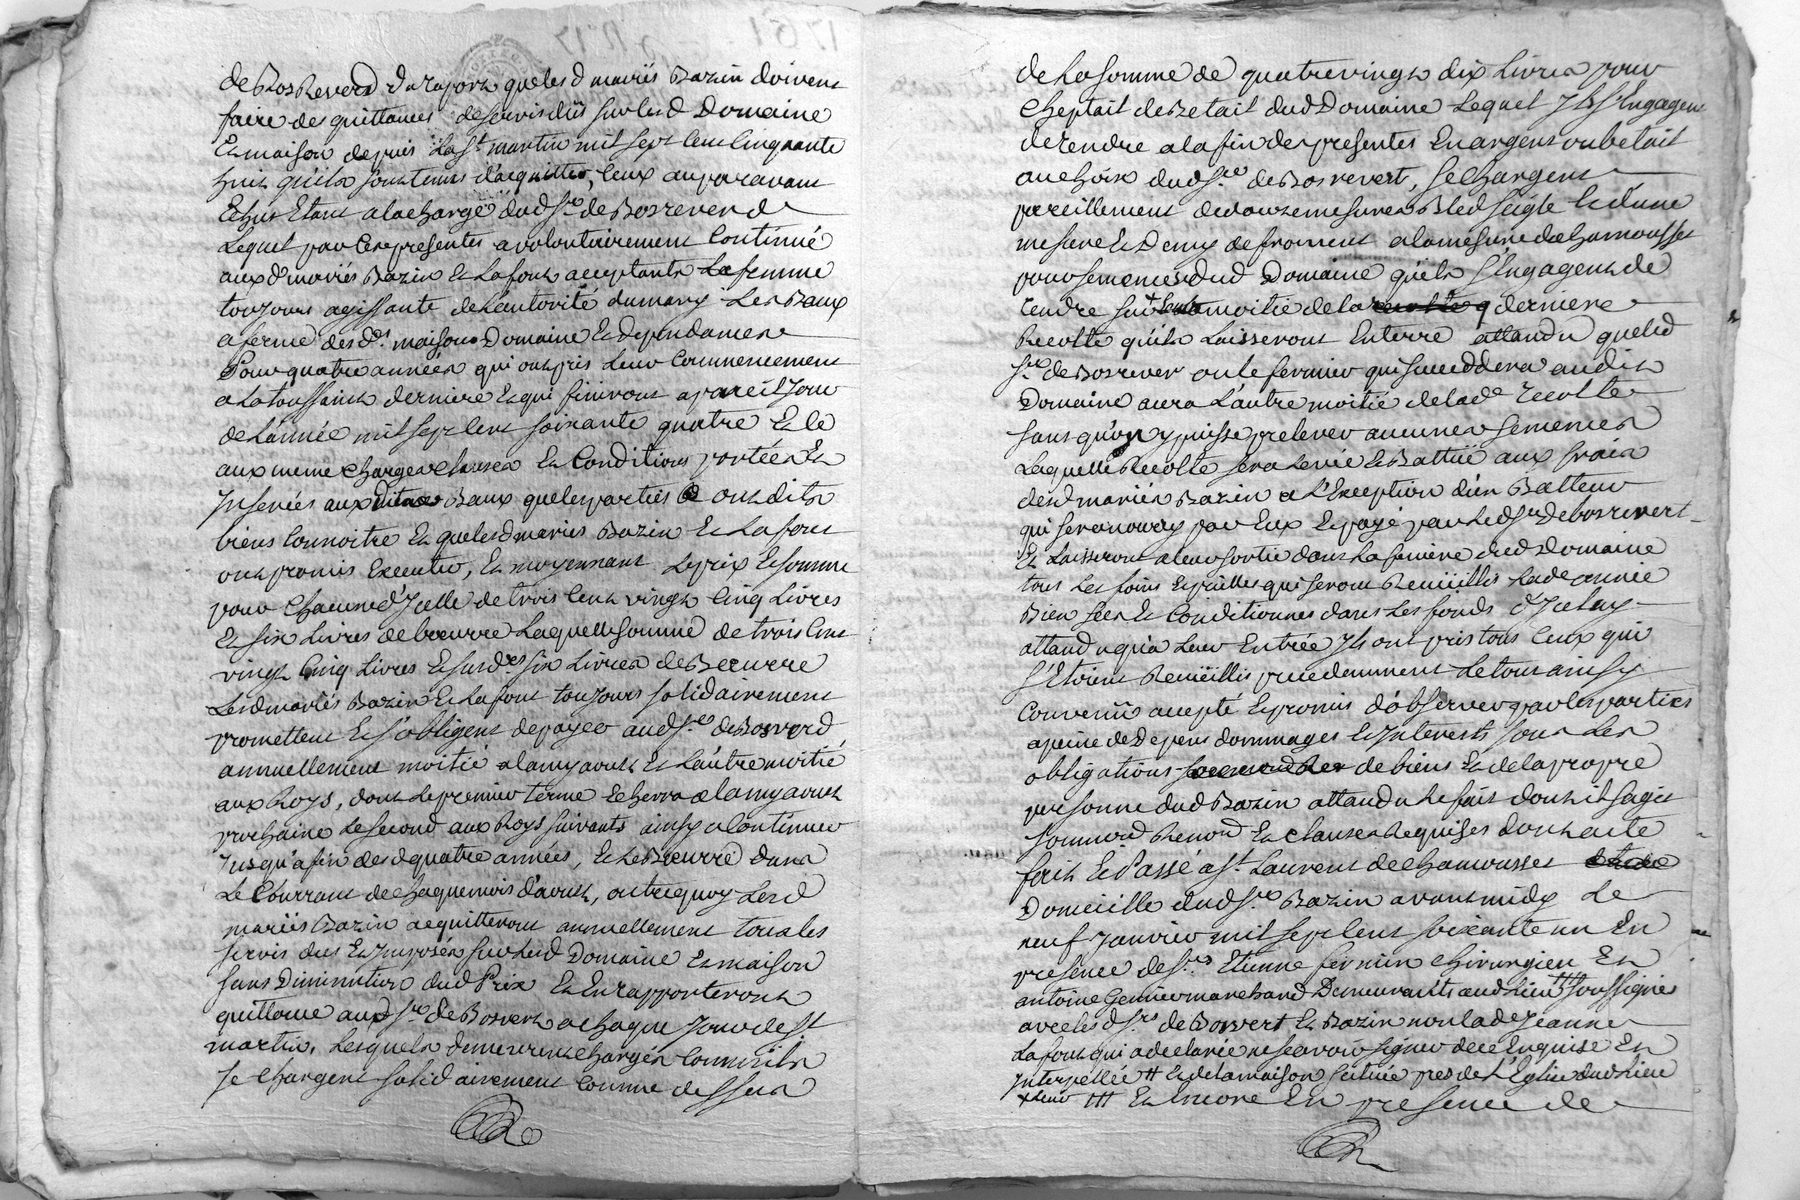 de Bosreverd du raport que lesd mariés Bazin doivent
faire des quittances de servis düs sur led Domaine
Et maison depuis la St martin mil sept Cent Cinquante
huit qu'ils sont tenus d'acquitter, Ceux auparavant
Echus Etant a la charge dud sr de Bosreverd
Lequel par Ces presentes a volontairement Continué
aux d mariés Bazin Et Lafont acceptants La femme
toujours agissante de Lautorité du mary Les Baux
a ferme des ds maison Domaine Et dependances
Pour quatre années qui ont pris Leur Commencement
a La toussaints derniere Et qui finiront a pareil Jour
de Lannée mil sept Cent soixante quatre Et Ce
aux meme charges clauses Et Conditions portées Et
Inserées aux Baux que les parties ont dit
biens Connoitre Et que lesd mariés Bazin Et Lafont
ont promis Executer, Et moyennant Le prix Et somme
pour Chacune d'Icelle de trois Cent vingt Cinq Livres
Et six Livres de beurre Laquelle somme de trois Cent
vingt Cinq Livres Et susdes six Livres de Beurre
Lesd mariés Bazin Et Lafont toujours solidairement
promettent Et s'obligent de payer aud sr de Bosverd
annuellement moitié a la my aoust Et L'autre moitié
aux Roys, dont Le premier terme Echerra a la my aoust
prochaine Le second aux Roys suivants ainsy a Continuer
Jusqu'a fin desd quatre années, Et Le Beurre dans
Le Courrant de chaque mois d'aoust, outre quoy Lesd
mariés Bazin acquitteront annuellement tous les
servis dus Et Imposés sur Led Domaine Et maison
sans Diminution dud Prix Et En rapporteront
quittance aud sr de Bosvert a chaque Jour de st
martin, Lesquels demeurent chargés Comm'ils
se chargent solidairement Comme dessus
de La somme de quatre vingt dix Livres pour
Cheptait de Betait dud Domaine Lequel Ils s'Engagent
de rendre a la fin des presentes En argent ou betait
au choix dud sr de Bosrevert, se chargent
pareillement de douze mesures Bled seigle Et d'une
mesure Et Demy de froment a la mesure de chamousset
pour semences dud Domaine qu'ils s'Engagent de
rendre sur moitié de la derniere
Recolte qu'ils Laisseront En terre attandu que led
sr de Bosrever ou le fermier qui succeddera audit
Domaine aura L'autre moitié de lade recolte
sans qu'on y puisse prelever aucunes semences
Laquelle Recolte sera Levée Et Battüe aux frais
desd mariés Bazin a l'Exception d'un Batteur
qui sera noury par Eux Et payé par Led sr de bosrevert
Et Laisseront a leur sortie dans La feniere dud Domaine
tous Les foins Et pailles qui seront Reüeillis Lade année
Bien secs Et Conditionnes dans Les fonds d'Iceluy
attandu qu'a Leur Entrée Ils ont pris tous Ceux qui
s'Etoient Reüeillis precedemment Le tout ainsy
Convenü accepté Et promis d'observer par les parties
a peine de Depens dommages Et Interests sous Les
obligations de biens Et de la propre
personne dud Bazin attandu Le fait dont il sagit
soumiond Renond Et clauses Requises dont acte
fait Et Passé a st Laurent de chamousset
Domicille dud sr Bazin avant midy Le
neuf Janvier mil sept Cent soixante un En
presence de srs Etienne fermier chirurgien Et
antoine Genier marchand Demeurants aud Lieu ttt soussignés
avec lesd srs de Bosvert Et Bazin non lade Jeanne
Lafont qui a declarée ne scavoir signer de ce Enquise Et
Interpellée tt Et de la maison scituée pres de L'Eglise dud Lieu
ttt Et Encore En presence de